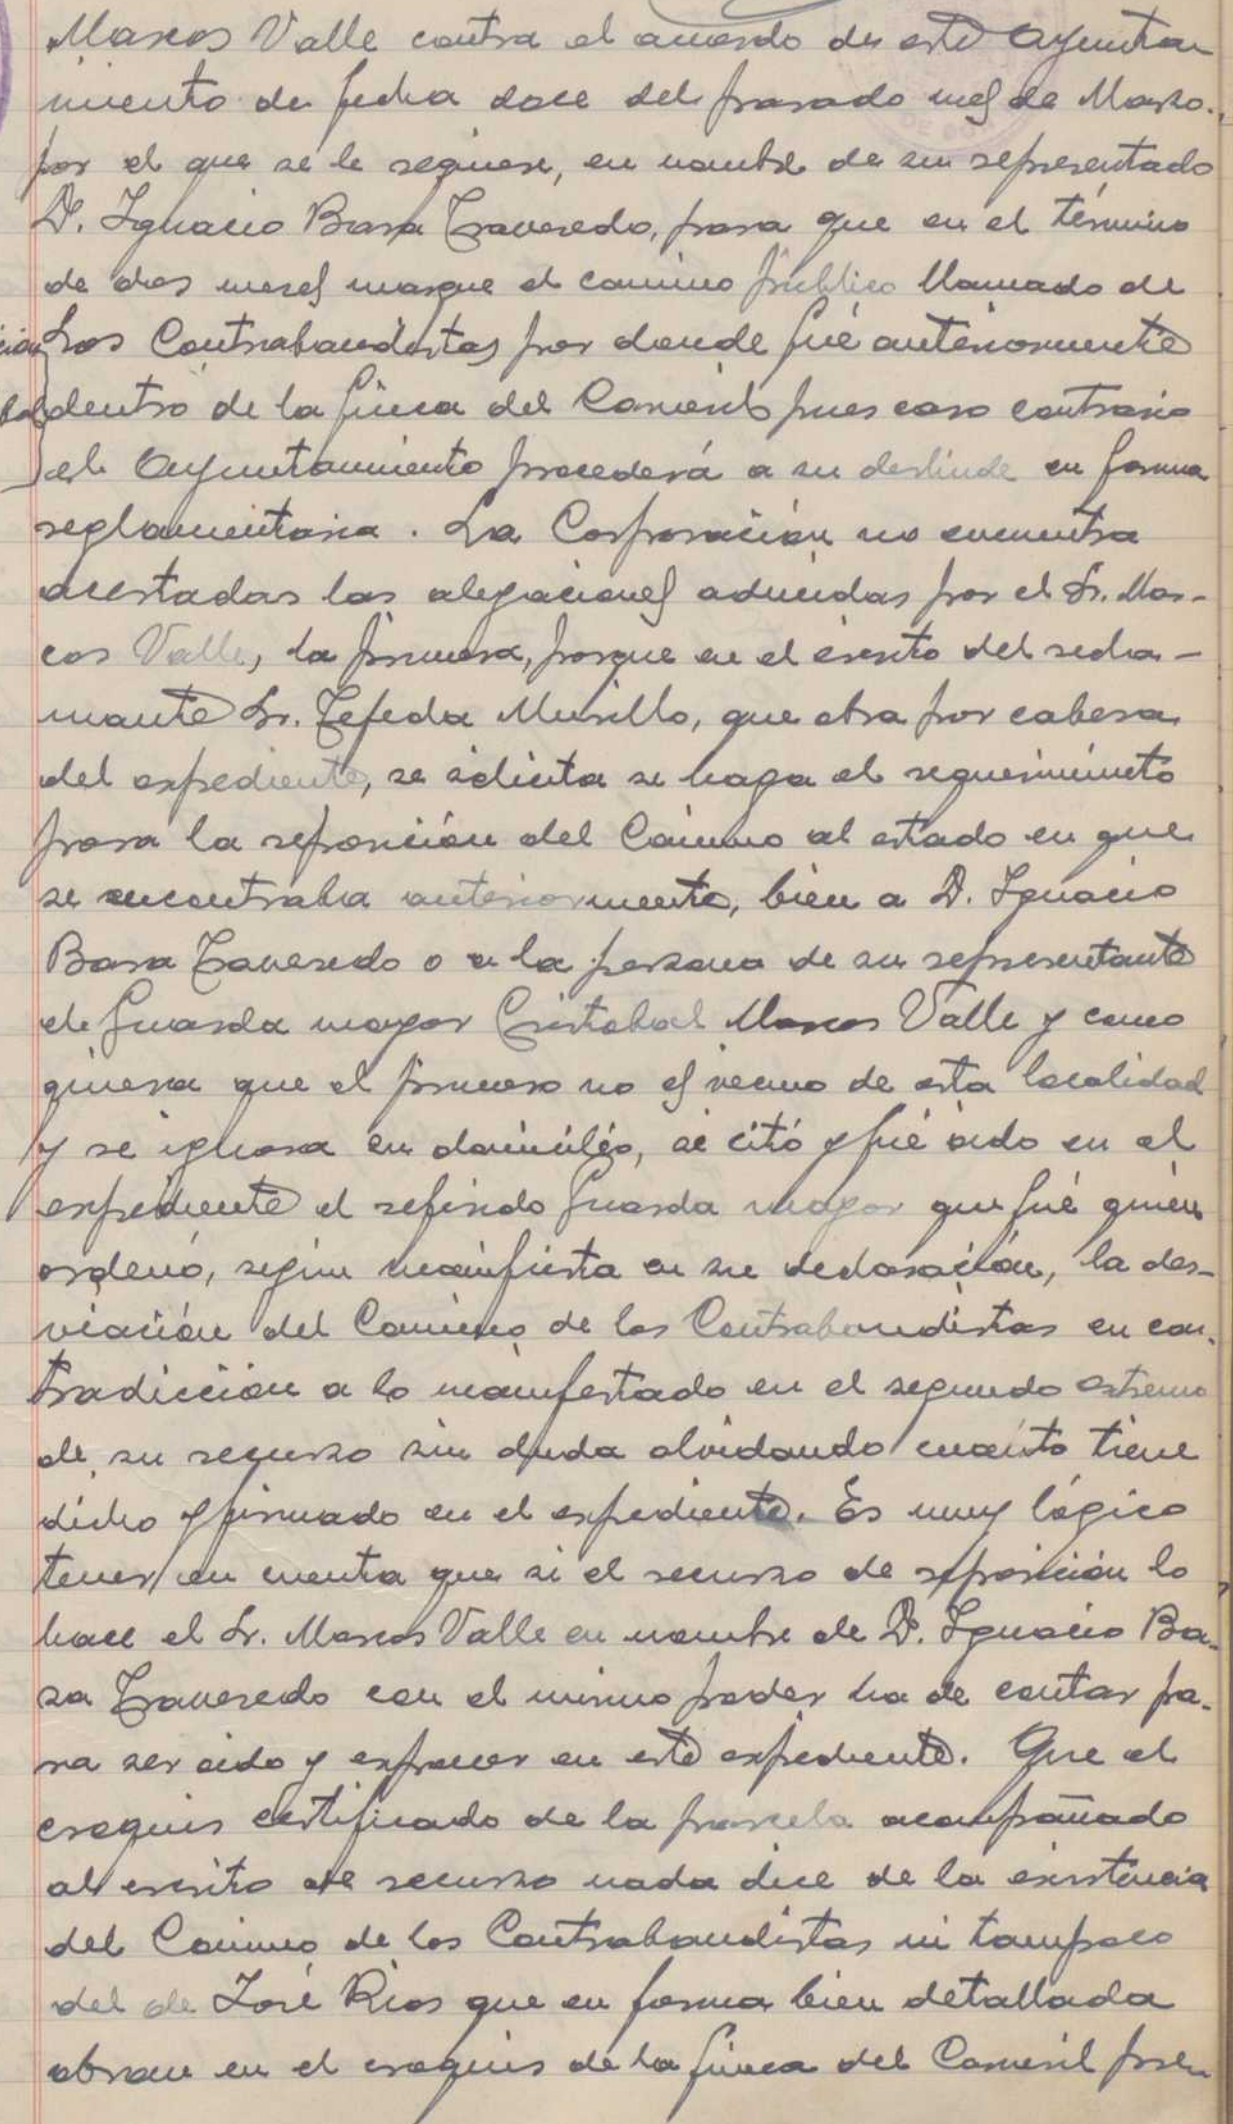 Marcos Valle contra el acuerdo de este Ayunta
miento de fecha doce del pasado mes de Marzo.
por el que se le requiere, en nombre de su representado
D. Ignacio Bara Traveredo, para que en el término
de dos meses marque el camino público llamado de
Los Contrabandistas por donde fué anteriormente
dentro de la finca del Comeril pues caso contrario
el Ayuntamiento procederá a su deslinde en forma
reglamentaria. La Corporación no encuentra
acertadas las alegaciones aducidas por el Sr. Mar-
cos Valle, la primera, porque en el escrito del recla-
mante Sr. Tejeda Murillo, que obra por cabeza
del expediente, se solicita se haga el requerimineto
para la reposición del Camino al estado en que
se encontraba anteriormente, bien a D. Ignacio
Bara Traveredo o a la persona de su representante
el Guarda mayor Cristobal Marcos Valle y como
quiera que el primero no es vecino de esta localidad
y se ignora su domicilio, se citó y fué oido en el
expediente el referido Guarda mayor que fué quien
ordenó, según manifiesta en su declaración, la des-
viación del Camino de los Contrabandistas en con-
tradicción a lo manifestado en el segundo extremo
de su recurso sin duda olvidando cuanto tiene
dicho y firmado en el expediente. Es muy lógico
tener en cuenta que si el recurso de reposición lo
hace el Sr. Marcos Valle en nombre de D. Ignacio Ba-
ra Traveredo con el mismo poder ha de contar pa-
ra ser oido y exponer en este expediente. Que el
croquis certificado de la parcela acompañado
al escrito de recurso nada dice de la existencia
del Camino de los Contrabandistas ni tampoco
del de José Rios que en forma bien detallada
obran en el croquis de la finca del Comeril pre